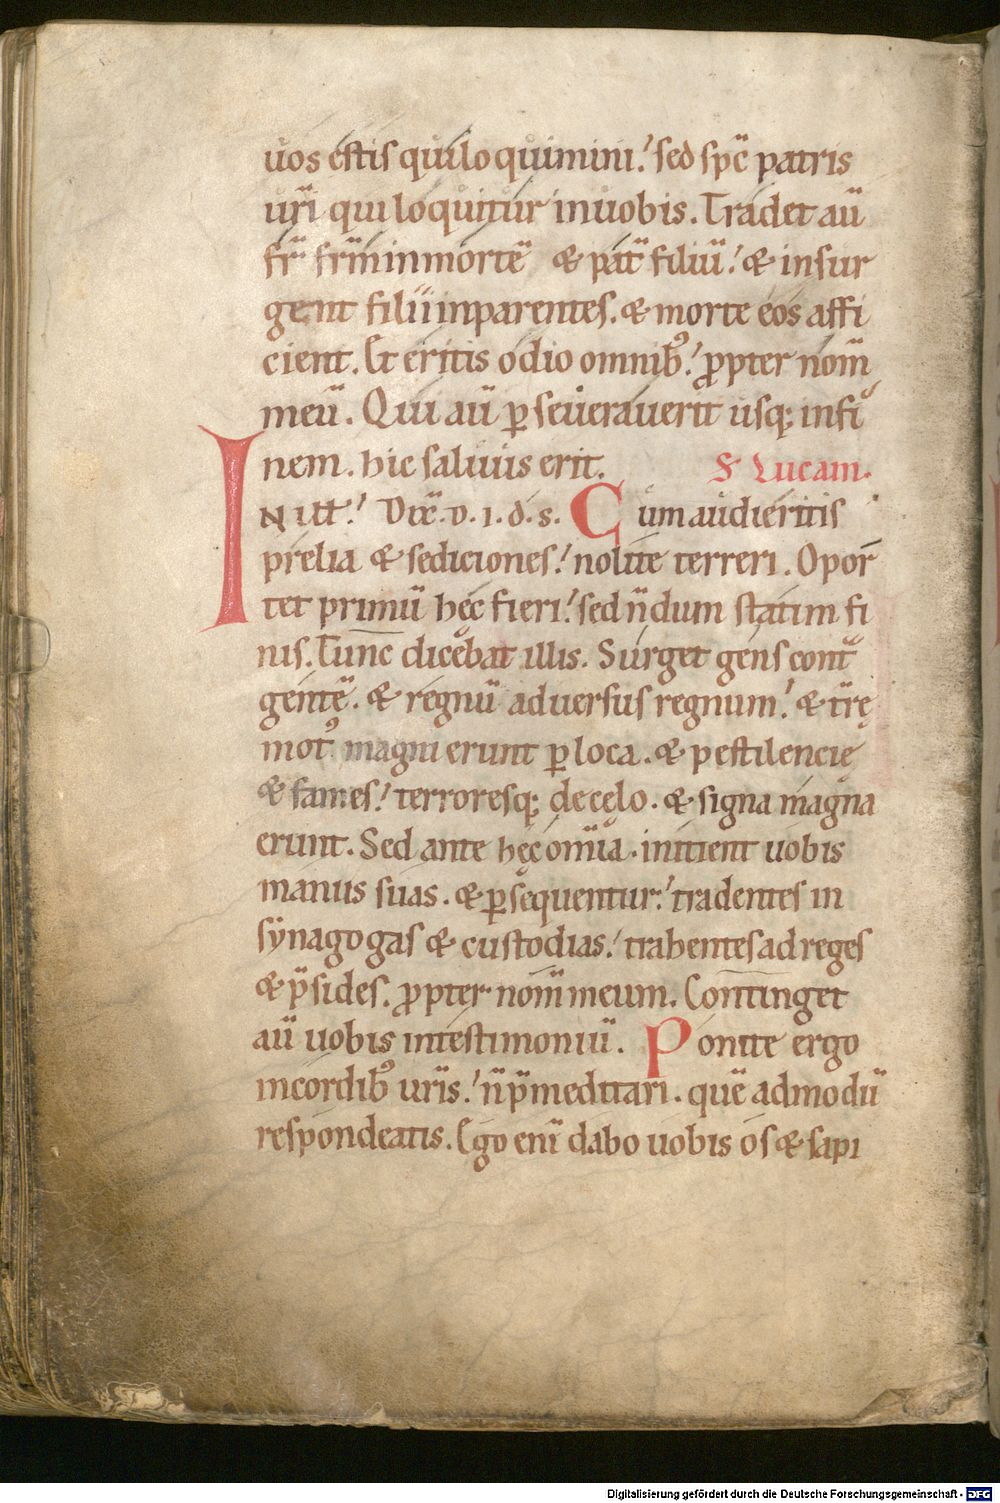 uos estis qui loquimini. sed spc̄ patris
ur̄i qui loquitur inuobis. Tradet aū
fr̄ fr̄m inmortē & pat̄ filiū. & insur
gent filii inparentes. & morte eos affi
cient. Et eritis odio omnib; ꝓpter nom̄
meū. Qui aū ꝑseuerauerit usq; infi
nem. hic saluus erit. S Lucam.
IN ill̄. Dix̄. d. i. d. s. Cum audieritis
prelia & sediciones. nolite terreri. Opor
tet primū hęc fieri. sed n̄dum statim fi
nis. Tunc dicebat illis. Surget gens cont̄
gentē. & regnū aduersus regnum. & tr̄ę
mot᾽ magni erunt ꝑ loca. & pestilencię
& fames. terroresq; decęlo. & signa magna
erunt. Sed ante hęc om̄ia. initient uobis
manus suas. & ꝑsequentur. tradentes in
synagogas & custodias. trahentes ad reges
& p̄sides. ꝓpter nom̄ meum. Continget
aū uobis intestimoniū. Ponite ergo
incordib; ur̄is. n̄ p̄meditari. quē admodū
respondeatis. Ego eni dabo uobis os & sapi
Digitalisierung gefördert durch die Deutsche Forschungsgemeinschaft - DFG